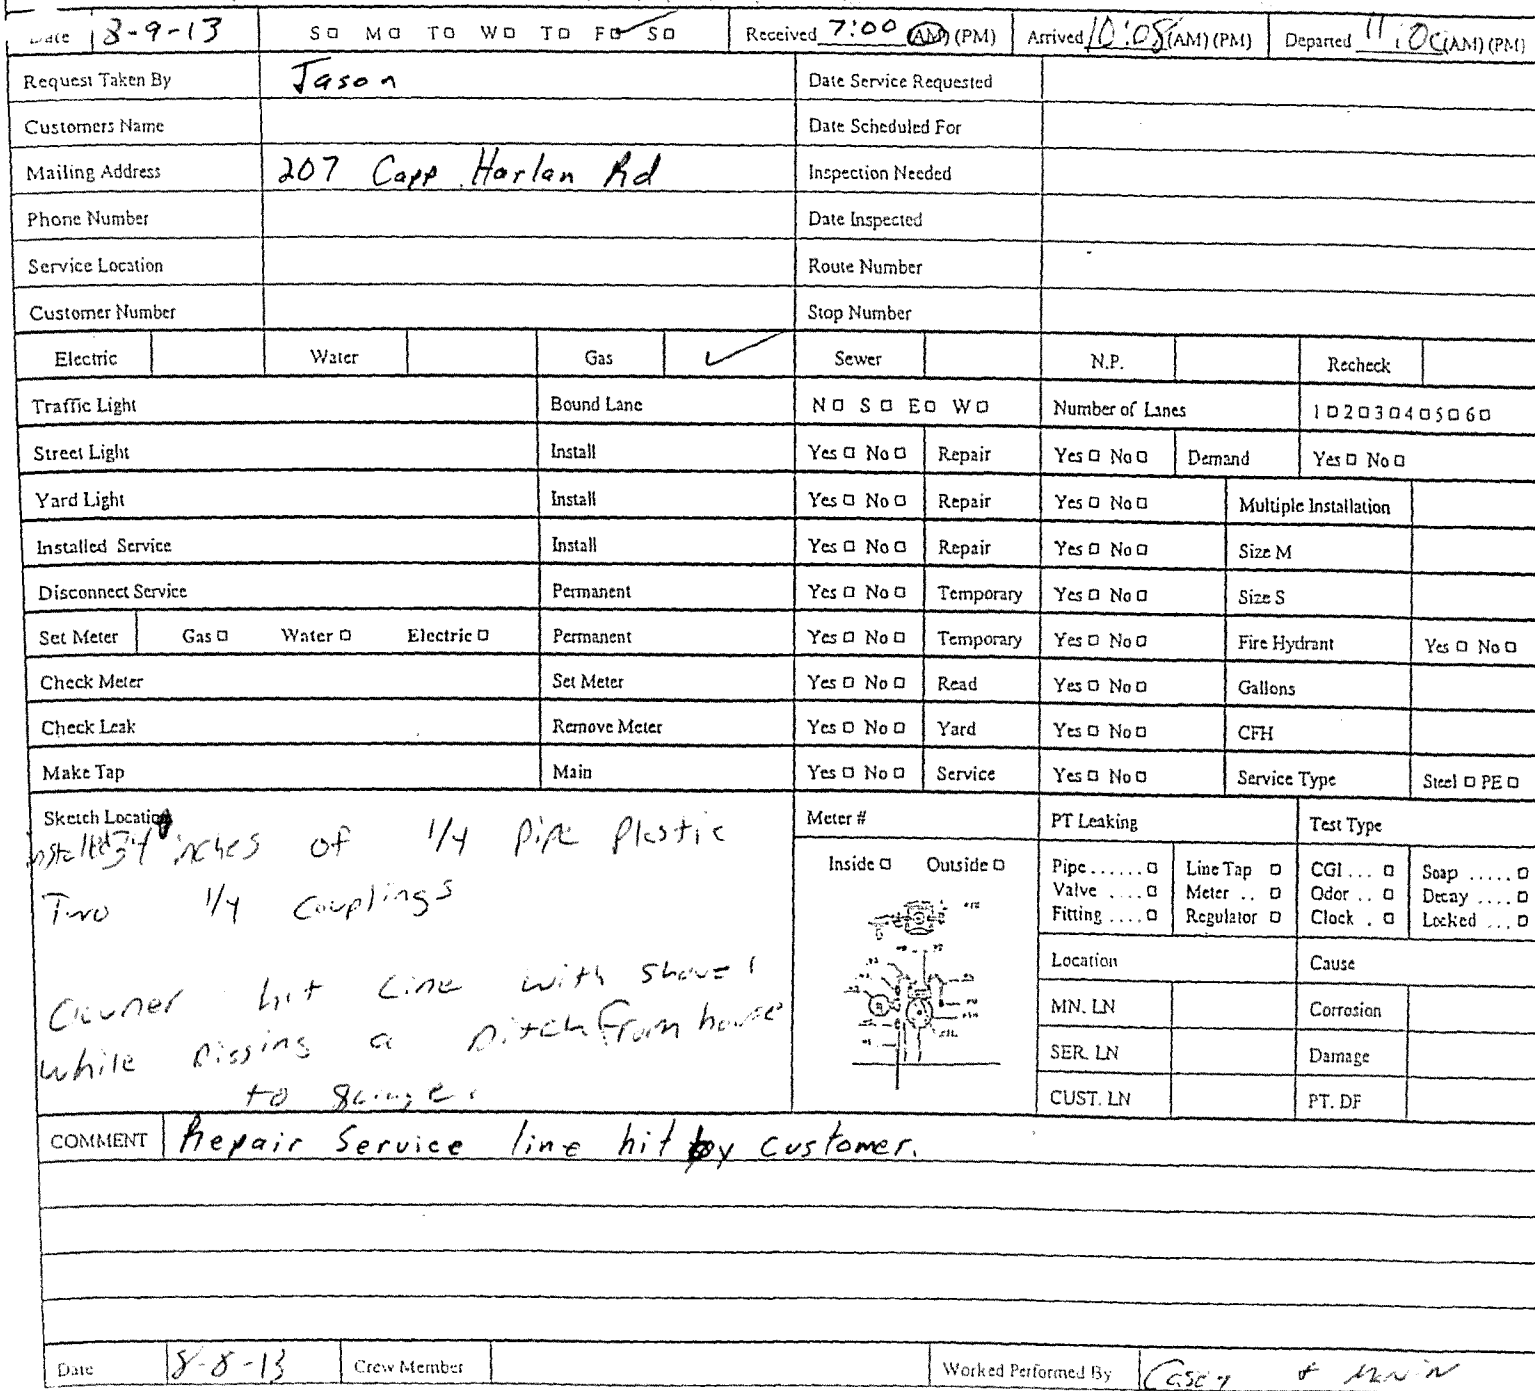 Date 8-9-13 S□ M□ T□ W□ T□ F☑ S□ Received 7:00 (AM) (PM) Arrived 10:08 (AM) (PM) Departed 11:00 (AM) (PM)
Request Taken By Jason Date Service Requested
Customers Name Date Scheduled For
Mailing Address 207 Capp Harlan Rd Inspection Needed
Phone Number Date Inspected
Service Location Route Number
Customer Number Stop Number
Electric Water Gas ✓ Sewer N.P. Recheck
Traffic Light Bound Lane N□ S□ E□ W□ Number of Lanes 1□2□3□4□5□6□
Street Light Install Yes□ No□ Repair Yes□ No□ Demand Yes□ No□
Yard Light Install Yes□ No□ Repair Yes□ No□ Multiple Installation
Installed Service Install Yes□ No□ Repair Yes□ No□ Size M
Disconnect Service Permanent Yes□ No□ Temporary Yes□ No□ Size S
Set Meter Gas□ Water□ Electric□ Permanent Yes□ No□ Temporary Yes□ No□ Fire Hydrant Yes□ No□
Check Meter Set Meter Yes□ No□ Read Yes□ No□ Gallons
Check Leak Remove Meter Yes□ No□ Yard Yes□ No□ CFH
Make Tap Main Yes□ No□ Service Yes□ No□ Service Type Steel□ PE□
Sketch Location
installed inches of 1/4 pipe plastic
Two 1/4 couplings
Owner hit Line with shovel
while Digging a Ditch From house
to
Meter #
Inside□ Outside□
PT Leaking Test Type
Pipe......□ Line Tap □ CGI... □ Soap .....□
Valve ....□ Meter .. □ Odor .. □ Decay ....□
Fitting ....□ Regulator □ Clock . □ Locked ...□
Location Cause
MN. LN Corrosion
SER. LN Damage
CUST. LN PT. DF
COMMENT Repair Service line hit by customer.
Date 8-8-13 Crew Member Worked Performed By Casey +